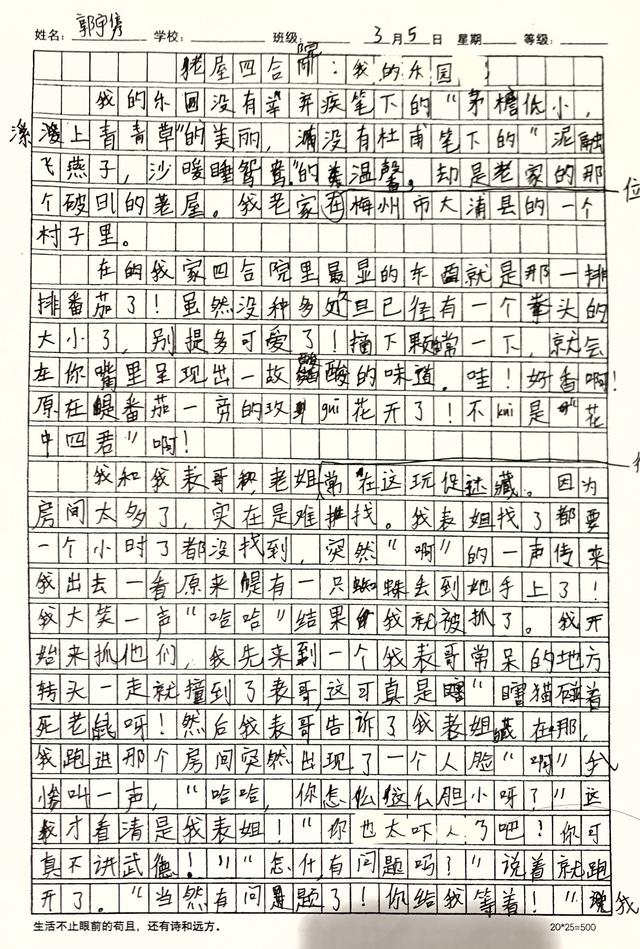 姓名：郭宇俊 学校： 班级： 3月5日 星期 等级：
老屋四合院：我的乐园
我的乐园没有辛弃疾笔下的“茅檐低小，
溪上青青草”的美丽，没有杜甫笔下的“泥融
飞燕子，沙暖睡鸳鸯。”的温馨，却是老家的那
个破旧的老屋。我老家在梅州市大浦县的一个 位
村子里。
在的我家四合院里最显的东西就是那一排
排番茄了！虽然没种多久但已径有一个拳头的
大小了，别提多可爱了！摘下颗尝一下，就会
在你嘴里呈现出一故酸酸的味道。哇！好香啊！
原在是番茄一旁的玫gui花开了！不kui是“花
中四君”啊！
我和我表哥和老姐常在这玩促迷藏。因为
房间太多了，实在是难找。我表姐找了都要
一个小时了都没找到，突然“啊”的一声传来
我出去一看原来是有一只蜘蛛丢到她手上了！
我大笑一声“哈哈”结果我就被抓了。我开
始来抓他们，我先来到一个我表哥常呆的地方
转头一走就撞到了表哥，这可真是“瞎猫碰着
死老鼠呀！然后我表哥告诉了我表姐藏在那，
我跑进那个房间突然出现了一个人脸“啊”我
惨叫一声，“哈哈，你怎么这么胆小呀？”这
我才看清是我表姐！“你也太吓人了吧？你可
真不讲武德！”“怎什，有问题吗？”说着就跑
开了。“当然有问题了！你给我等着！”说我
生活不止眼前的苟且，还有诗和远方。 20*25=500